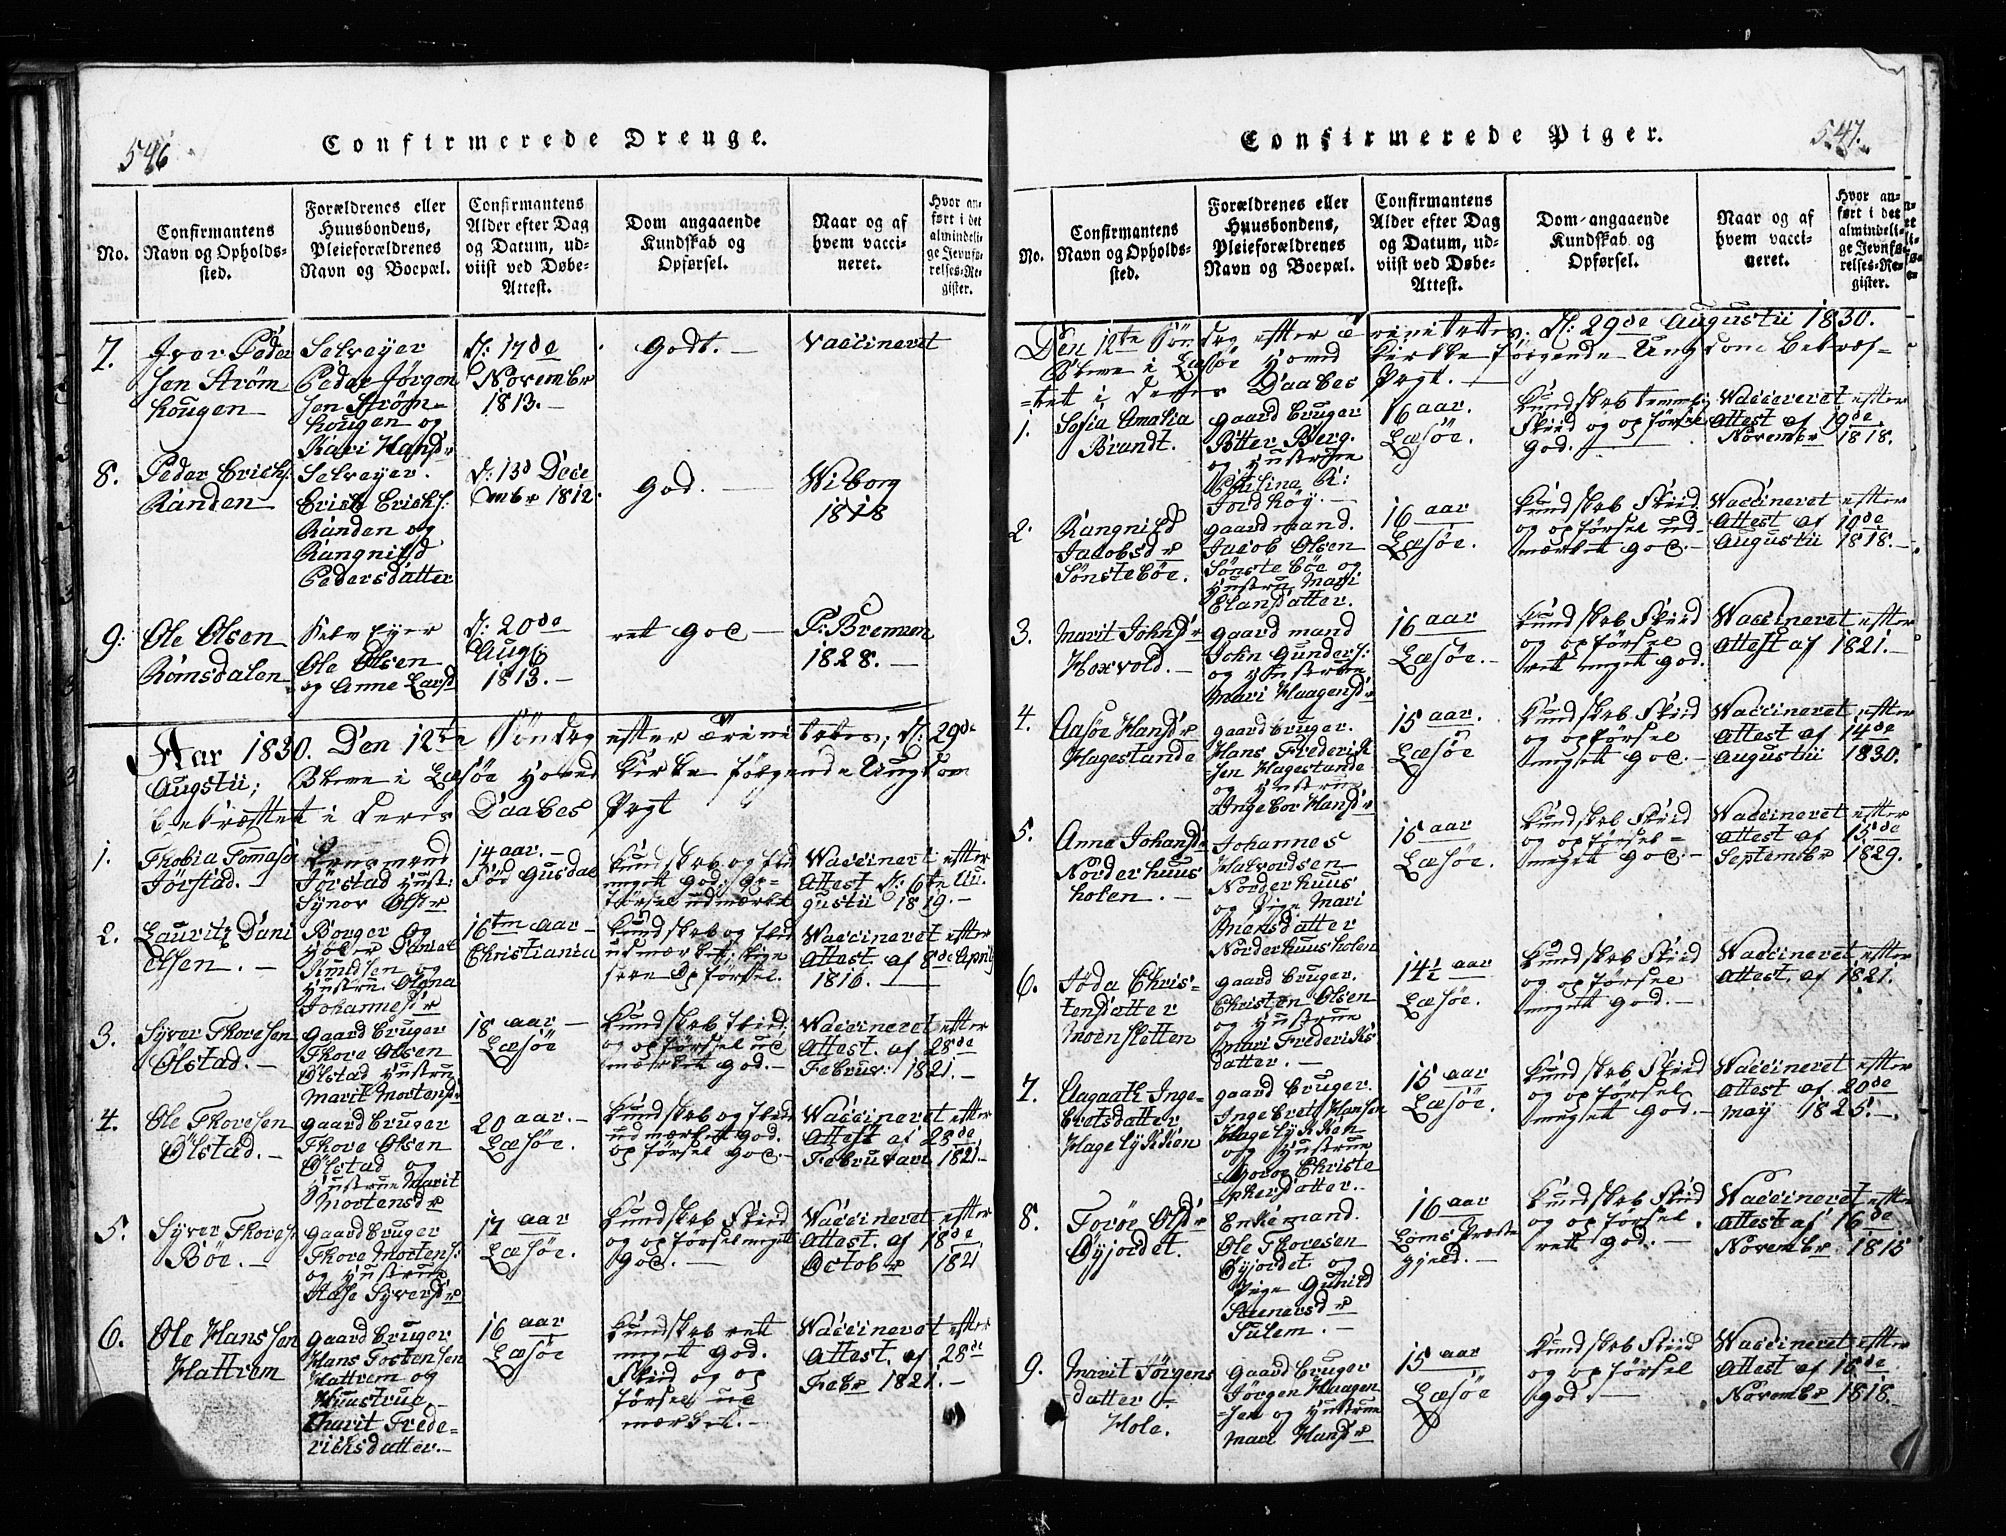 546
Confirmerede Drenge.
No.
Confirmantens
Navn og Opholds-
sted.
Forældrenes eller
Huusbondens,
Pleieforældrenes
Navn og Boepæl.
Confirmantens
Alder efter Dag
og Datum, ud-
viist ved Døbe-
Attest.
Dom angaaende
Kundskab og
Opførsel.
Naar og af
hvem vacci-
neret.
Hvor an-
ført i det
almindeli-
ge Jevnfø-
relses-Re-
gister.
7.
Iver Peder
sen Strøm
hougen
Selveyer
Peder Jørgen
sen Strøm-
hougen og
Kari Hansdr
D: 17de
Novembr
1813.-
Godt.-
Vaccineret
8.
Peder Erichs:
Randen
Selveyer.
Erich Erichs:
Randen og
Rangnild
Pedersdatter
D: 13d Dece
mbr 1812.
God.-
Wiborg
1818
9:
Ole Olsen
Romsdalen
Selv Eyer
Ole Olsen
og Anne Larsd
D: 20de
Aug
1813.-
ret God-
P: Bremsen
1828.-
Aar 1830. Den 12te Søndag efter Trinitatis, D: 29de
Augstii; Bleve i Læsøe Hoved Kirke følgende Ungdom
bekræftet i deres Daabes Pagt
1.
Thobia Tomas
Jørstad.-
Lensmand
Jørstad Hust:
Synov Olsdr
14 aar.-
Fød Gusdal
Kundskab og Flid
meget God; Op-
førsel udmærket
Waccineret efter
Attest D: 6te Au-
gustii 1819.-
2.
Lauritz Dani
elsen.-
Borger og
Høker Daniel
Knudsen og
Hustru Olena
Johannesdr
16ten aar-
Christiania
Kundskab og Flid
udmærket; lige
saa Opførsel.
Waccineret efter
Attest af 8de April
1816.
3.
Syver Thoresen
Ølstad.-
Gaardbruger
Thore Olsen
Ølstad Hustru
Marit Mortensd
18 aar-
Læsøe
Kundskab Flid;
og opførsel ud
mærket God.-
Waccineret efter
Attest. af 28de
Februar: 1821.-
4.
Ole Thoresen
Ølstad.-
Gaardbruger
Thore Olsen
Ølstad og
Hustrue Marit
Mortensdr
20 aar.-
Læsøe.
Kundskab og Flid
udmærket God.
opførsel God.-
Waccineret efter
Attest af 28de
Februari 1821.-
5.
Syver Thores:
Bøe.-
Gaardbruger
Thore Mortens:
og Hustrue
Aase Syversdr
17 aar
Læsøe.
Kundskab Fliid
og opførsel meget
God.-
Waccineret efter
Attest. af 18de
Octobr 1821
6.
Ole Hanssen
Hattrem
Gaardbruger
Hans Tostensen
Hattrem og
Huustrue
Marit Frede-
richsdatter.-
16 aar
Læsøe
Kundskab ret
meget God.
Fliid og op
førsel ud
mærket.-
Waccineret efter
Attest. af 28de
Febr 1821.-
547.
Confirmerede Piger.
No.
Confirmantens
Navn og Opholds-
sted.
Forældrenes eller
Huusbondens,
Pleieforældrenes
Navn og Boepæl.
Confirmantens
Alder efter Dag
og Datum, ud-
viist ved Døbe-
Attest.
Dom angaaende
Kundskab og
Opførsel.
Naar og af
hvem vacci-
neret.
Hvor an-
ført i det
almindeli-
ge Jevnfø-
relses-Re-
gister.
Den 12te Søndag efter Trinitatis; D: 29de Augustii 1830.
Bleve i Læsøe Hoved Kirke følgende Ungdom bekræf-
tet i deres Daabes Pagt.-
1.
Sofia Amalia
Brandt.
Gaardbruger
Pitter Berg.
og Hustrue
R:
Jordhøy.-
16 aar.
Læsøe.
Kundskab temmelig
Fliid og opførsel
God.
Waccineret efter
Attest af 19de
Novembr 1818.
2.
Rangnild
Jacobsdr
Sønsteböe.
Gaardmand.
Jacob Olsen
Sønsteböe og
Hustru Mari
Hansdatter.
16 aar
Læsøe.
Kundskab Fliid
og opførsel ud-
mærket God.-
Waccineret efter
Attest af 10de
Augustii 1818.-
3.
Marit Johnsdr
Hoxvold.-
Gaardmand
John Gunders:
og Hustrue
Mari Haagensdr
16 aar
Læsøe.-
Kundskab Fliid
og opførsel
ret meget God.
Waccineret efter
Attest af 1821.-
4.
Aasøe Hansdr
Hagestande
Gaardbruger.
Hans Frederik
sen Hagestande
og Hustrue
Ingebor Hansdr
15 aar.
Læsøe
Kundskab Fliid
og opførsel
meget God.-
Waccineret efter
Attest af 14de
Augustii 1830.
5.
Anne Johansd
Norderhuus
holen.-
Johannes
Halvordsen
Norderhuus
og Pige Mari
datter
Norderhuusholen
15 aar
Læsøe.
Kundskab Fliid
og opførsel-
meget God.-
Waccineret efter
Attest af 15de
Septembr 1829.
6.
Jøda Chris-
tensdatter
Moensletten
Gaardbruger.
Christen Olsen
og Hustrue
Mari Frederiks
datter.-
14½ aar
Læsøe.
Kundskab Fliid
og opførsel
meget God.-
Waccineret efter
Attest. af 1821.
7.
Aagaath Inge-
bretsdatter
Hagelykken
Gaardbruger.
Ingebret Hansen
Hagelykken
og Hustrue
Goroe Christo
phersdatter.-
15 aar
Læsøe.
Kundskab Fliid
og opførsel
meget God.-
Waccineret efter
Attest af 20de
May 1825.-
8.
Toroe Olsdr
Øyjordet.
Enkemand.
Ole Thoresen
Øyjordet og
Pige Gunild
Steenersdr
Sulem.-
16 aar
Loms Præste
gjeld.-
Kundskab Fliid
og opførsel.
rett God.-
Waccineret efter
Attest af 16de
Novembr 1815
9.
Marit Jørgens
datter
Hole.
Gaardbruger
Jørgen Haagen
-sen og Hustrue
Mari Hansdr
15 aar
Læsøe
Kundskab Fliid
og opførsel
God.-
Waccineret efter
Attest af 16de
Novembr 1818.-